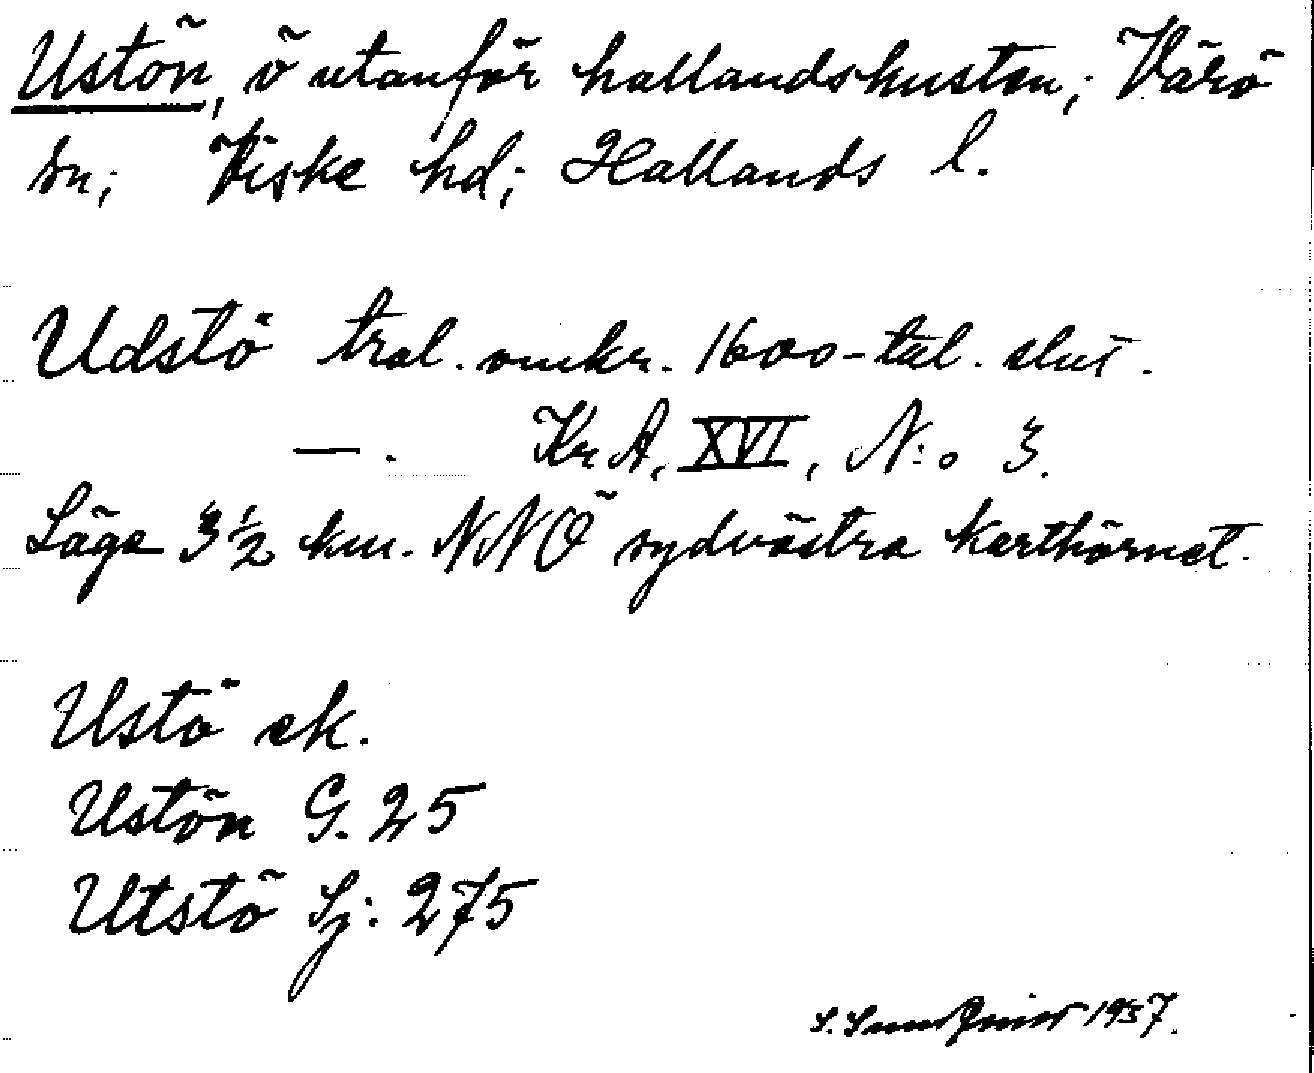 Ustön, ö utanför hallandskusten; Värö
sn; Viske hd; Hallands l.
Udstö trol. omkr. 1600-tal. slut.
—. Kr A, XVI, N:o 3.
Läge 3 1/2 km. NNÖ sydvästra karthörnet.
Ustö ek.
Ustön G. 25
Utstö Sj: 275
S. 1957.